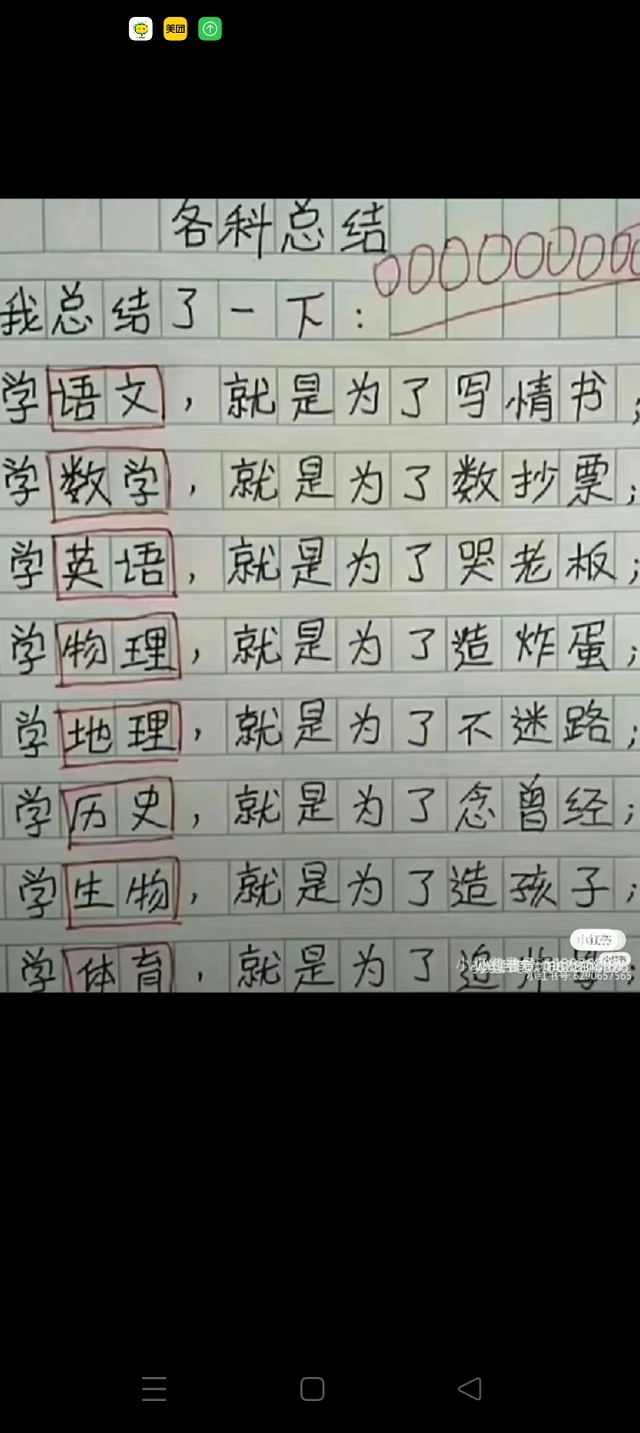 美团
各科总结
我总结了一下：
学语文，就是为了写情书；
学数学，就是为了数抄票；
学英语，就是为了哭老板；
学物理，就是为了造炸蛋；
学地理，就是为了不迷路；
学历史，就是为了念曾经；
学生物，就是为了造孩子；
小红书
学体育，就是为了追
小红书号:6290657565